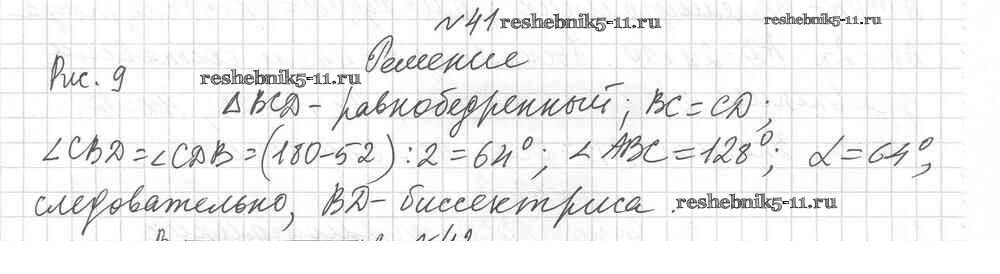 №41 reshebnik5-11.ru reshebnik5-11.ru
Решение
Рис. 9 reshebnik5-11.ru
△BCD - равнобедренный; BC=CD;
∠CBD=∠CDB=(180-52):2=64°; ∠ABC=128°; α=64°,
следовательно, BD- биссектриса. reshebnik5-11.ru
№42